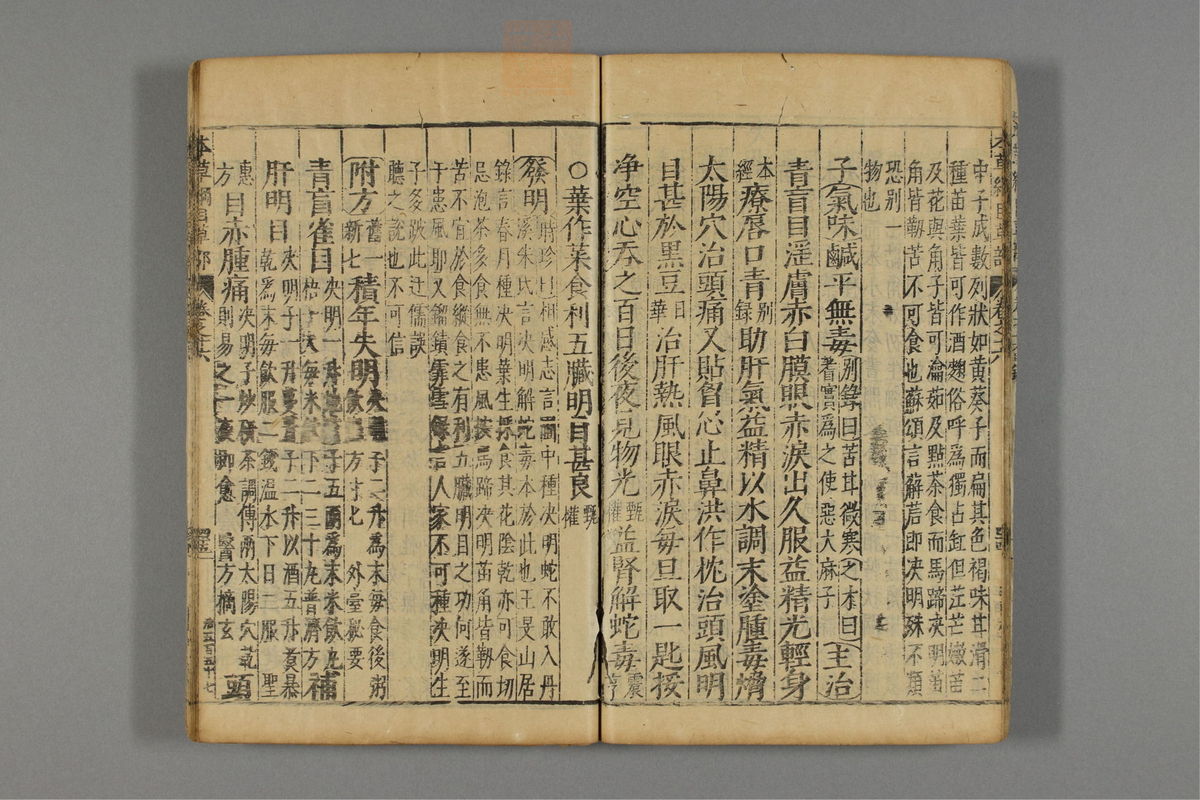 中子成數列狀如黃葵子而扁其色褐味甘滑二
種苗葉皆可作酒麴俗呼為獨占缸但茳芒嫩苗
及花與角子皆可瀹茹及點茶食而馬蹄決明苗
角皆韌苦不可食也蘇頌言薢茩即決明殊不類
恐別一
物也
子氣味鹹平無毒別錄曰苦甘微寒之才曰
蓍實為之使惡大麻子主治
青盲目淫膚赤白膜眼赤淚出久服益精光輕身
本經療唇口青別錄助肝氣益精以水調末塗腫毒熁
太陽穴治頭痛又貼胷心止鼻洪作枕治頭風明
目甚於黑豆日華治肝熱風眼赤淚每旦取一匙挼
淨空心吞之百日後夜見物光甄權益腎解蛇毒震亨
○葉作菜食利五臟明目甚良甄權
發明時珍曰相感志言圃中種決明蛇不敢入丹
溪朱氏言決明解蛇毒本於此也王旻山居
錄言春月種決明葉生採食其花陰乾亦可食切
忌泡茶多食無不患風按馬蹄決明苗角皆韌而
苦不宜於食縱食之有利五臟明目之功何遂至
于患風耶又鎦績霏雪錄言人家不可種決明生
子多跛此迂儒誤
聽之說也不可信
附方舊一
新七積年失明決明子二升為末每食後粥
飲服方寸匕外臺秘要
青盲雀目決明一升地膚子五兩為末米飲丸
梧子大每米飲下二三十丸普濟方補
肝明目決明子一升蔓菁子二升以酒五升煑暴
乾為末每飲服二錢溫水下日二服聖
惠
方目赤腫痛決明子炒研茶調傅兩太陽穴乾
則易之一夜即愈醫方摘玄頭
本草綱目草部
卷之十六